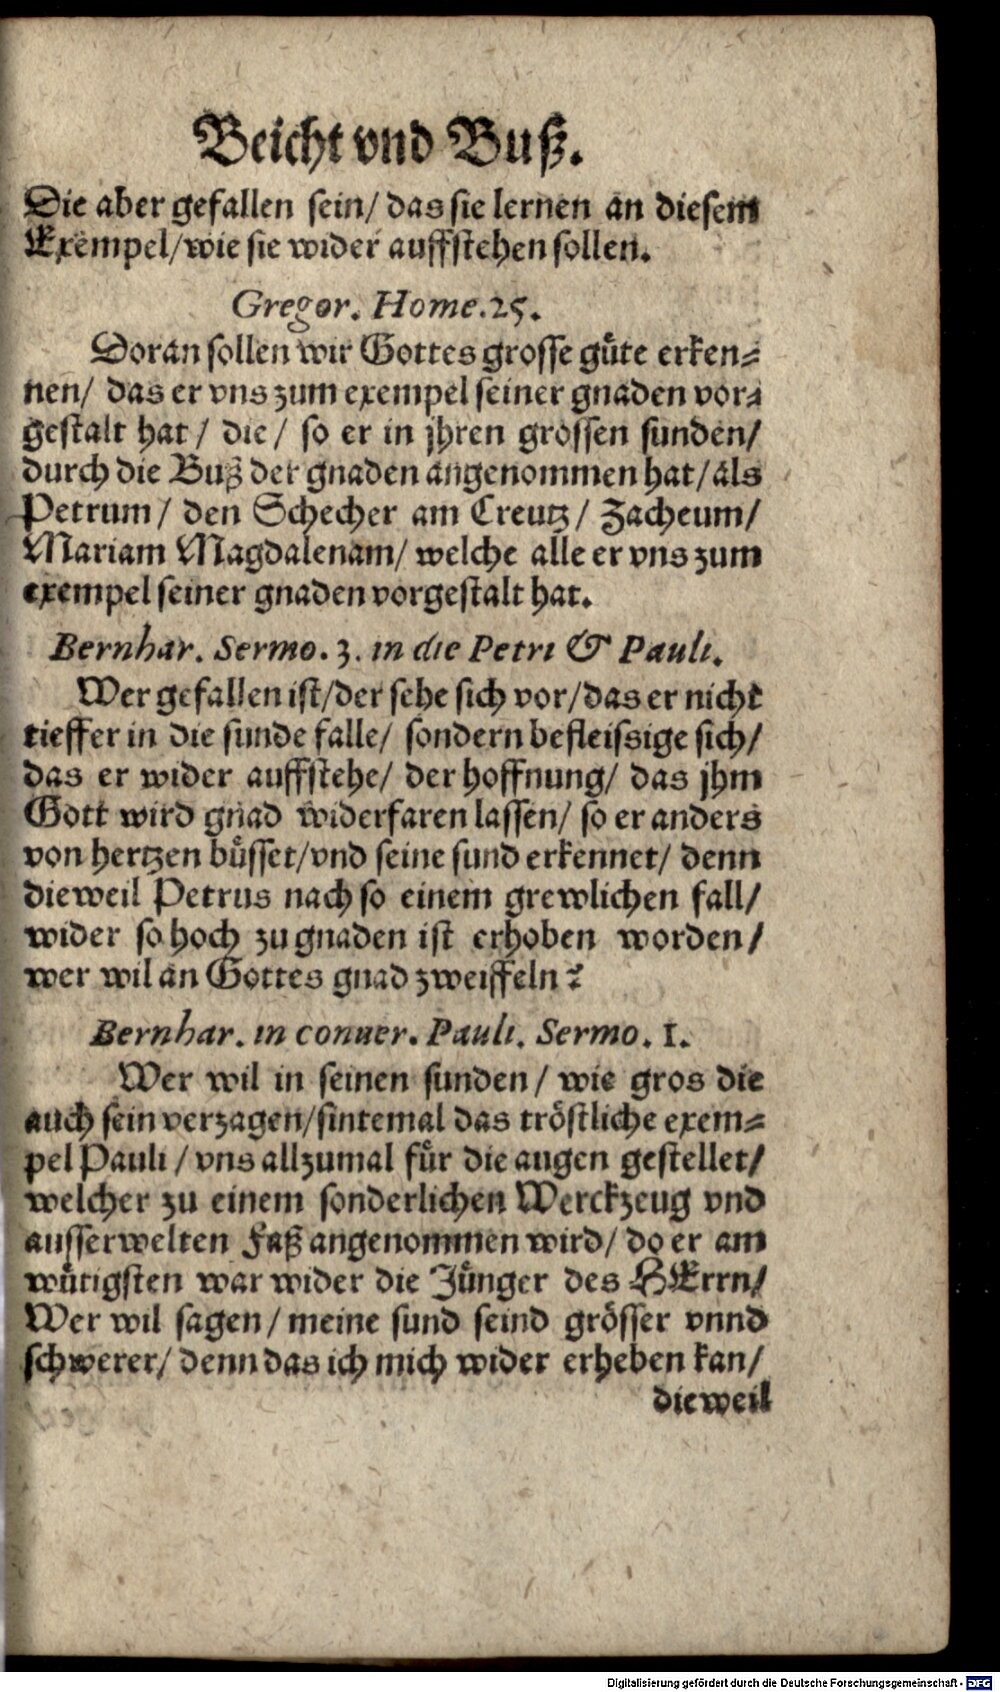 Beicht vnd Buß.
Die aber gefallen sein/ das sie lernen an diesem
Exempel/ wie sie wider auffstehen sollen.
Gregor. Home. 25.
Doran sollen wir Gottes grosse güte erken⸗
nen/ das er vns zum exempel seiner gnaden vor⸗
gestalt hat/ die/ so er in jhren grossen sunden/
durch die Buß der gnaden angenommen hat/ als
Petrum/ den Schecher am Creutz/ Zacheum/
Mariam Magdalenam/ welche alle er vns zum
exempel seiner gnaden vorgestalt hat.
Bernhar. Sermo. 3. in die Petri & Pauli.
Wer gefallen ist/ der sehe sich vor/ das er nicht
tieffer in die sunde falle/ sondern befleissige sich/
das er wider auffstehe/ der hoffnung/ das jhm
Gott wird gnad widerfaren lassen/ so er anders
von hertzen büsset/ vnd seine sund erkennet/ denn
dieweil Petrus nach so einem grewlichen fall/
wider so hoch zu gnaden ist erhoben worden/
wer wil an Gottes gnad zweiffeln?
Bernhar. in conuer. Pauli. Sermo. 1.
Wer wil in seinen sunden/ wie gros die
auch sein verzagen/ sintemal das tröstliche exem⸗
pel Pauli/ vns allzumal für die augen gestellet/
welcher zu einem sonderlichen Werckzeug vnd
ausserwelten Faß angenommen wird/ do er am
wütigsten war wider die Jünger des HErrn/
Wer wil sagen/ meine sund seind grösser vnnd
schwerer/ denn das ich mich wider erheben kan/
dieweil
Digitalisierung gefördert durch die Deutsche Forschungsgemeinschaft - DFG